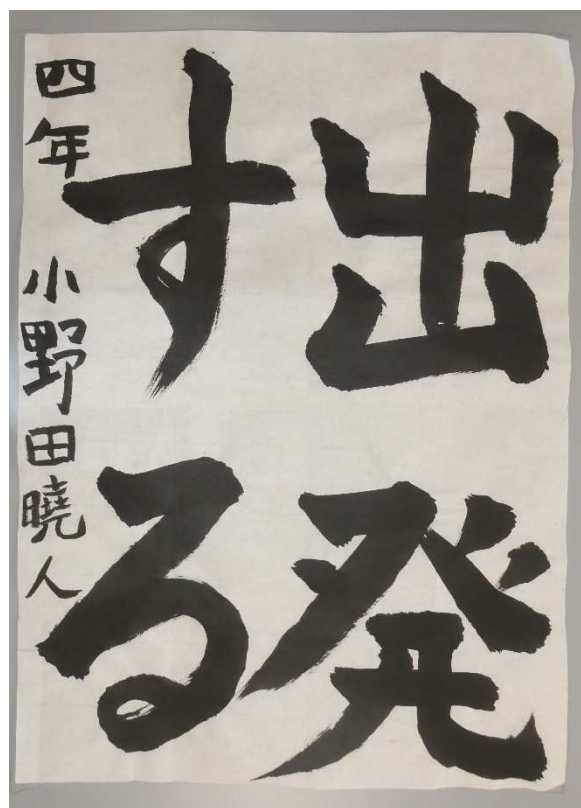 出発
する
四年 小野田曉人